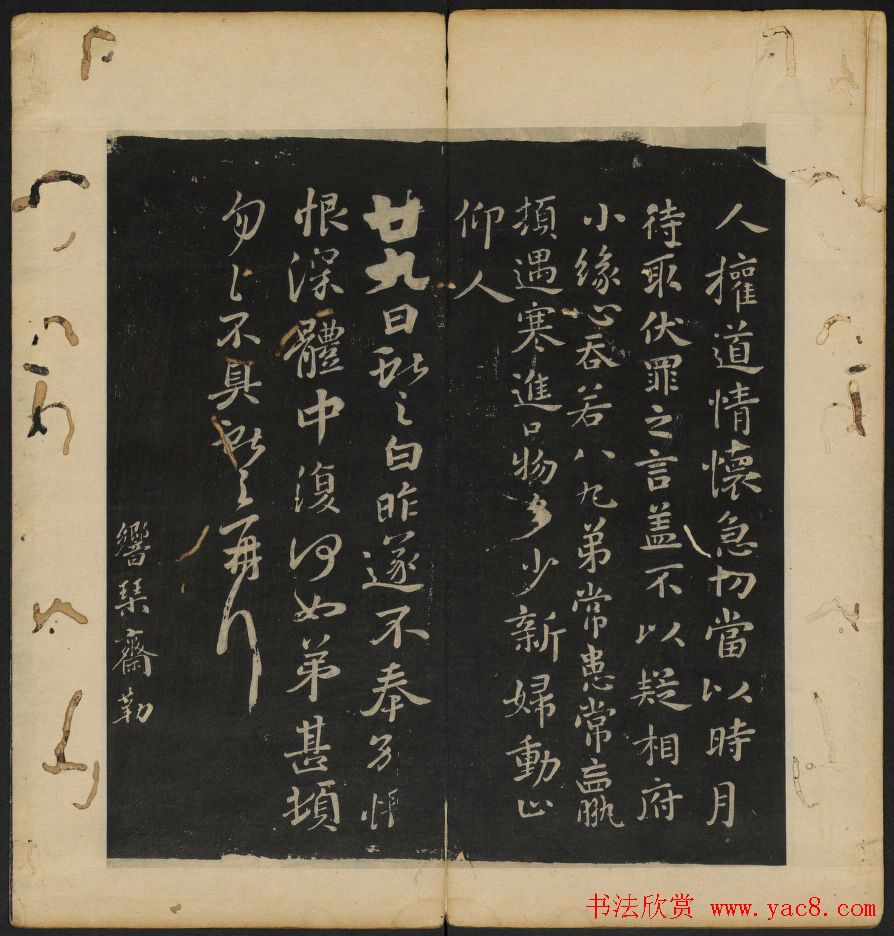 人㩲道情懷急切當以時月
待取伏罪之言盖不以疑相府
小緣心吞若八九弟常患常羸
頻遇寒進口物多少新婦動止
仰人
廿九日獻之白昨遂不奉別悵
恨深體中復何如弟甚頓
勿勿不具獻之再拜
響琴齋勒
书法欣赏 www.yac8.com